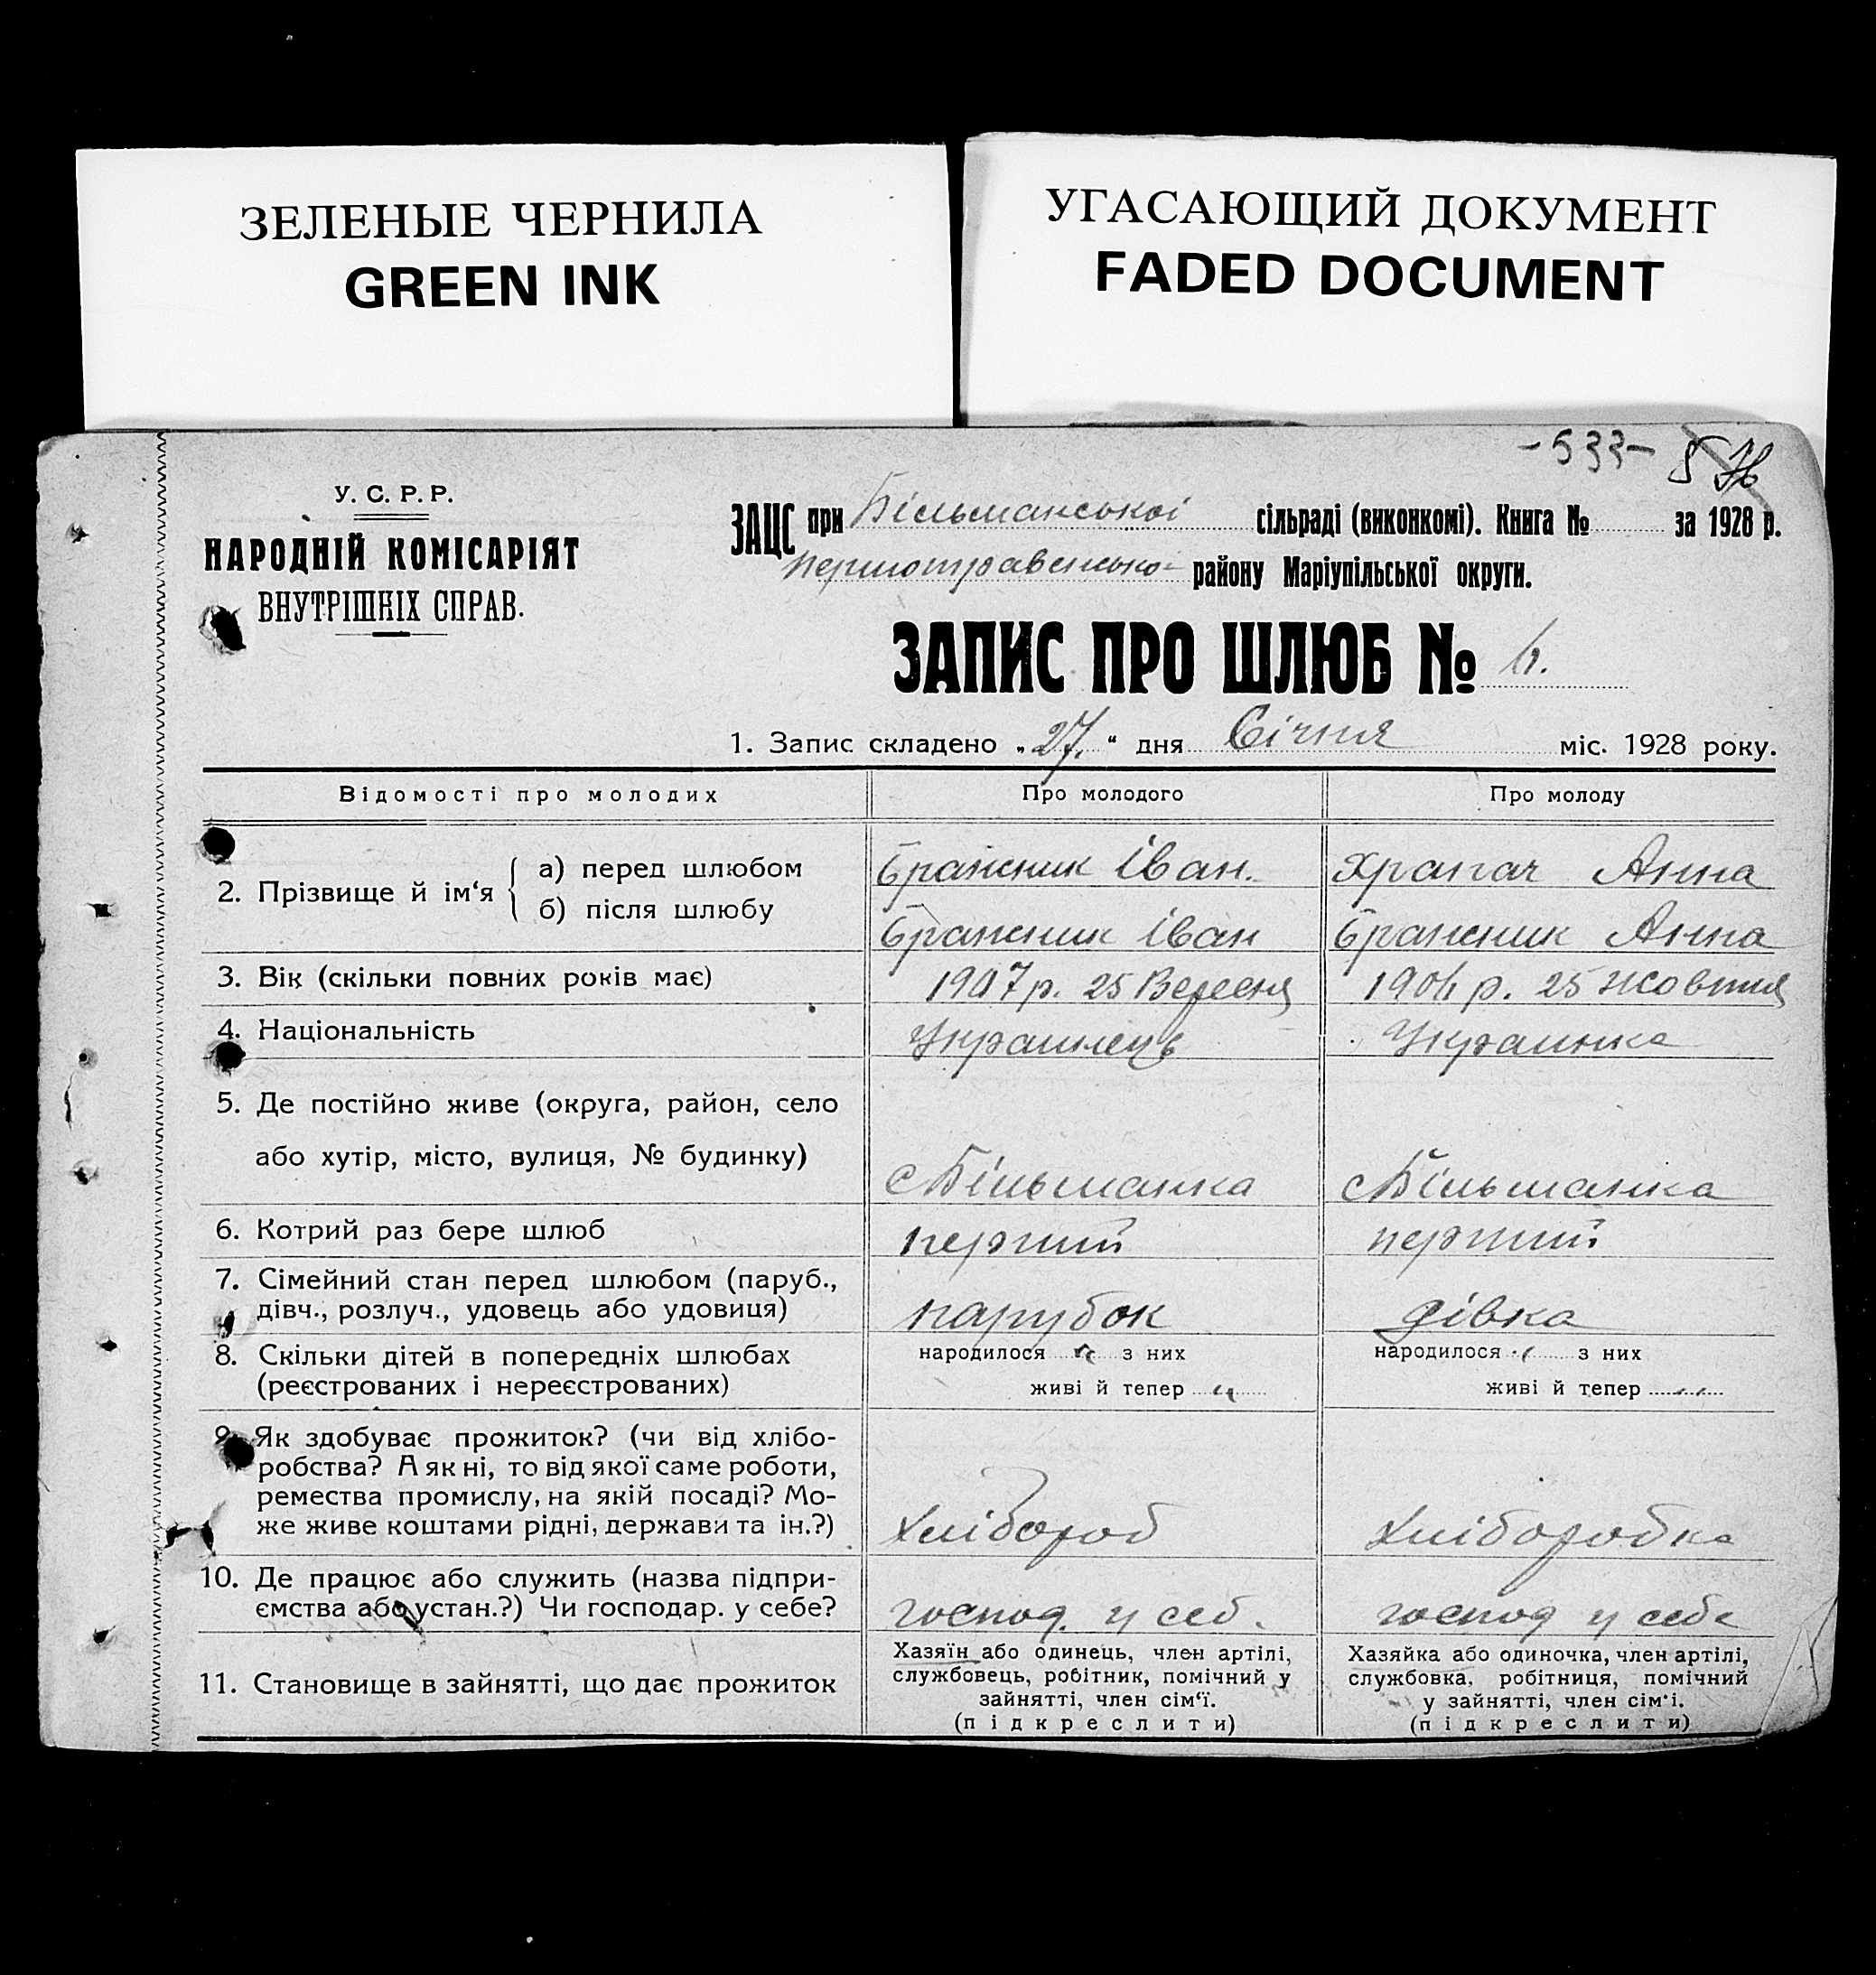 ЗЕЛЕНЫЕ ЧЕРНИЛА
GREEN INK
УГАСАЮЩИЙ ДОКУМЕНТ
FADED DOCUMENT
-533-
У. С. Р. Р.
НАРОДНІЙ КОМІСАРІЯТ
ВНУТРІШНІХ СПРАВ.
ЗАЦС при Більманської сільраді (виконкомі). Книга № за 1928 р.
першотравенсько району Маріупільської округи.
ЗАПИС ПРО ШЛЮБ № 6.
1. Запис складено „27.“ дня Січня міс. 1928 року.
Відомості про молодих Про молодого Про молоду
2. Прізвище й ім‘я а) перед шлюбом Бражник Іван. Храпач Анна
б) після шлюбу Бражник Іван Бражник Анна
3. Вік (скільки повних років має) 1907 р. 25 Вересня 1906 р. 25 жовтня
4. Національність Украинець Украинка
5. Де постійно живе (округа, район, село
або хутір, місто, вулиця, № будинку) с Більманка с Більманка
6. Котрий раз бере шлюб перший перший
7. Сімейний стан перед шлюбом (паруб.,
дівч., розлуч., удовець або удовиця) парубок дівка
8. Скільки дітей в попередніх шлюбах народилося з них народилося з них
(реєстрованих і нереєстрованих) живі й тепер живі й тепер
9. Як здобуває прожиток? (чи від хлібо-
робства? А як ні, то від якої саме роботи,
ремества промислу, на якій посаді? Мо-
же живе коштами рідні, держави та ін.?) Хлібороб Хліборобка
10. Де працює або служить (назва підпри-
ємства або устан.?) Чи господар. у себе? господ. у себ. господ у себе
11. Становище в зайнятті, що дає прожиток
Хазяїн або одинець, член артілі,
службовець, робітник, помічний у
зайнятті, член сім‘ї.
(підкреслити)
Хазяйка або одиночка, член артілі,
службовка, робітниця, помічний
у зайнятті, член сім‘і.
(підкреслити)